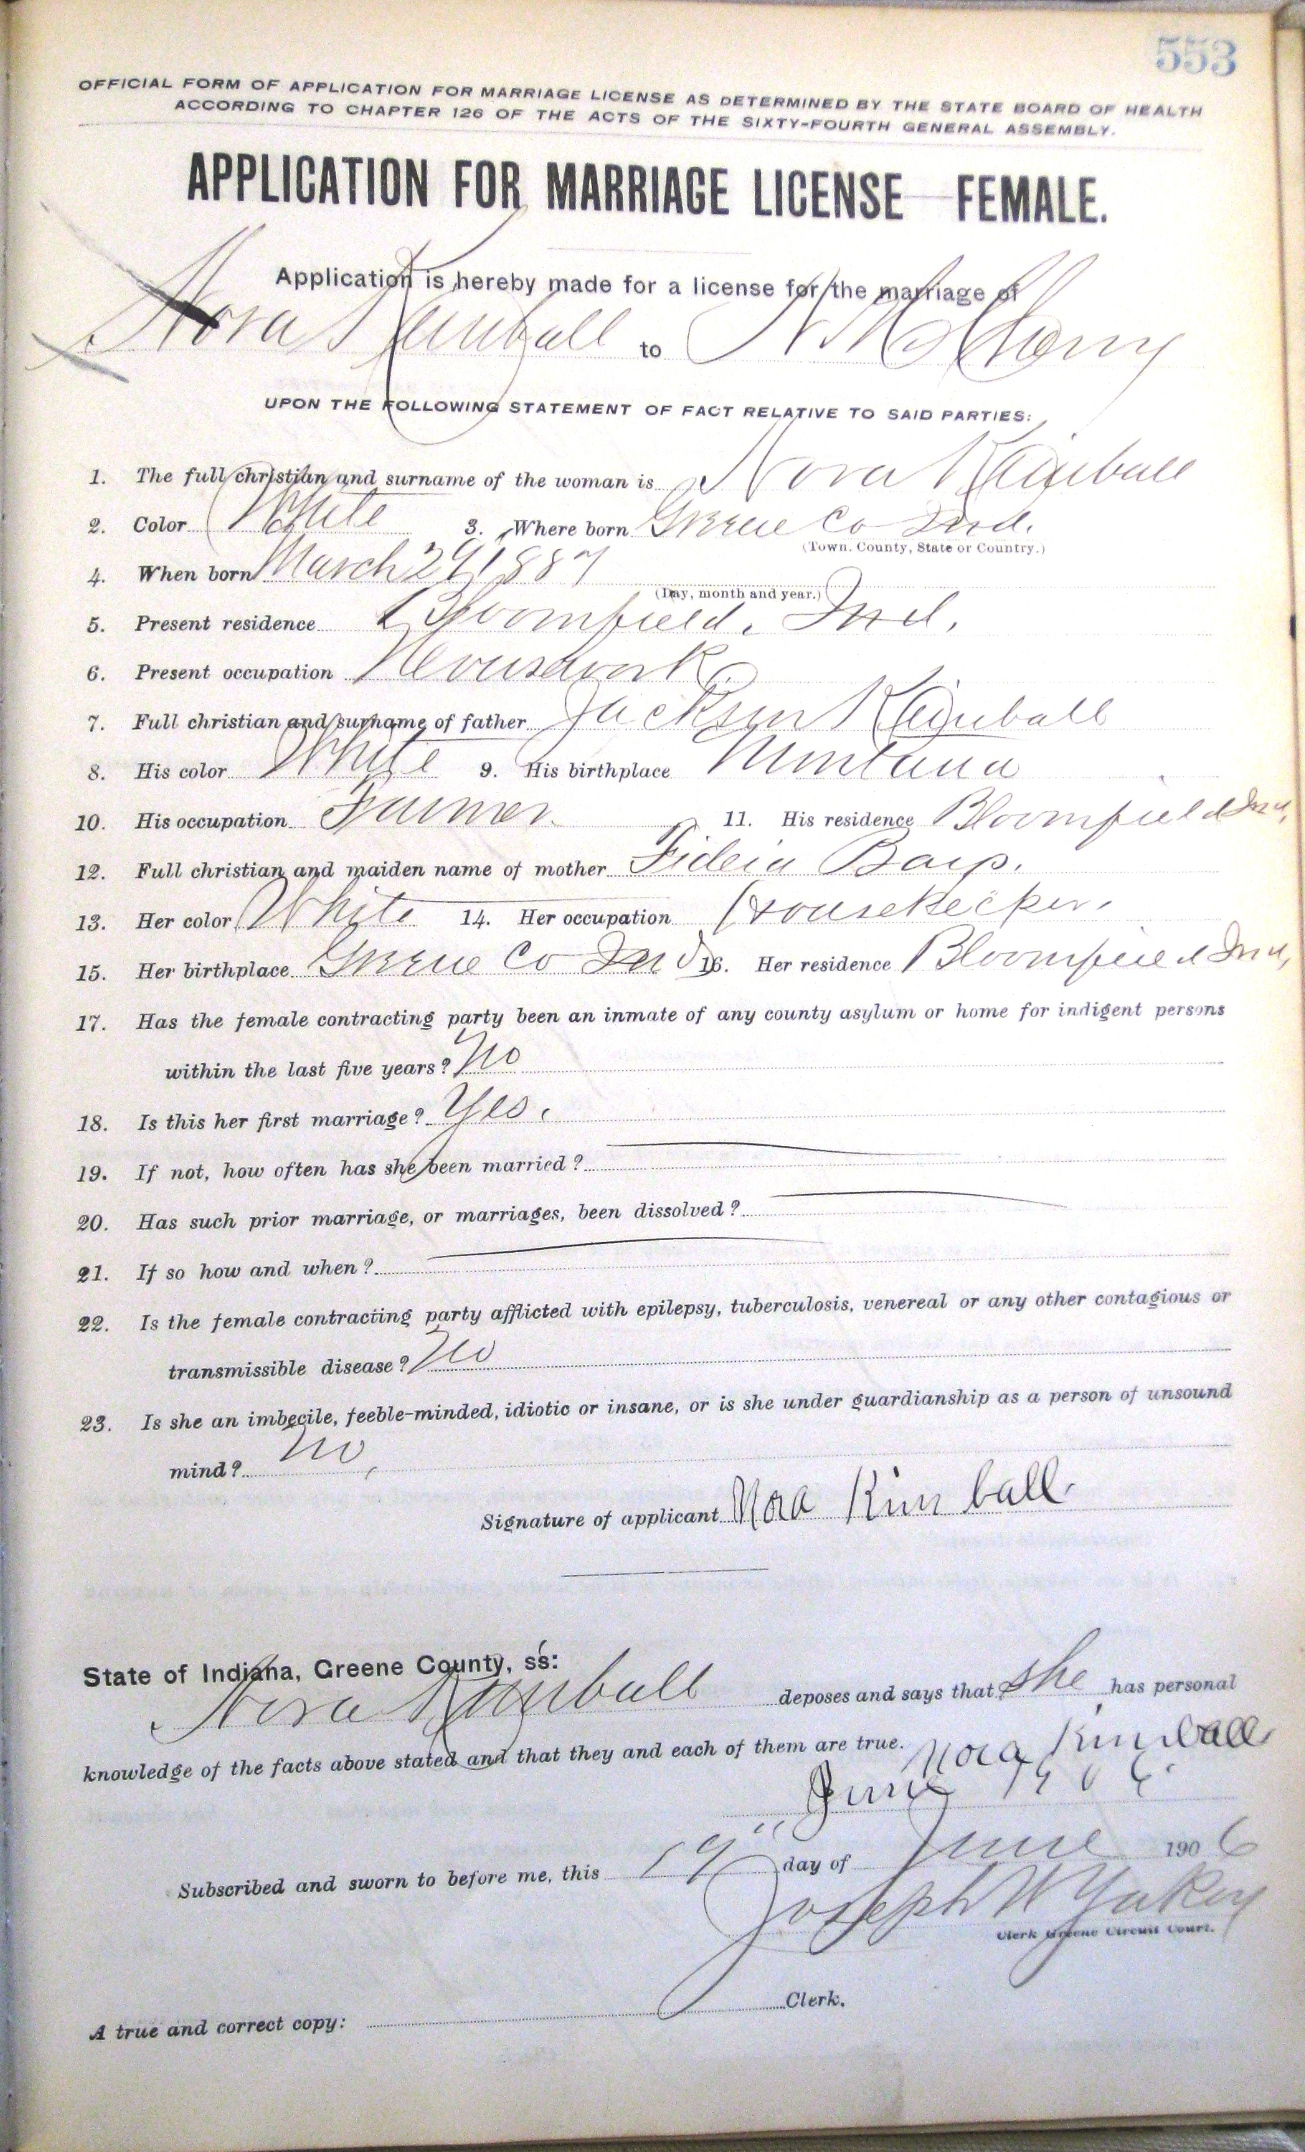 553
OFFICIAL FORM OF APPLICATION FOR MARRIAGE LICENSE AS DETERMINED BY THE STATE BOARD OF HEALTH
ACCORDING TO CHAPTER 126 OF THE ACTS OF THE SIXTY-FOURTH GENERAL ASSEMBLY.
APPLICATION FOR MARRIAGE LICENSE FEMALE.
Application is hereby made for a license for the marriage of
Nora Kimball to
UPON THE FOLLOWING STATEMENT OF FACT RELATIVE TO SAID PARTIES:
1. The full christian and surname of the woman is Nora Kimball
2. Color White 3. Where born Greene Co Ind.
(Town. County, State or Country.)
4. When born March 29 1887
(Day, month and year.)
5. Present residence Bloomfield, Ind.
6. Present occupation Housework
7. Full christian and surname of father Jackson Kimball
8. His color White 9. His birthplace Montana
10. His occupation Farmer 11. His residence Bloomfield Ind.
12. Full christian and maiden name of mother
13. Her color White 14. Her occupation Housekeeper.
15. Her birthplace Greene Co Ind 16. Her residence Bloomfield Ind,
17. Has the female contracting party been an inmate of any county asylum or home for indigent persons
within the last five years? No
18. Is this her first marriage? Yes.
19. If not, how often has she been married?
20. Has such prior marriage, or marriages, been dissolved?
21. If so how and when?
22. Is the female contracting party afflicted with epilepsy, tuberculosis, venereal or any other contagious or
transmissible disease? No
23. Is she an imbecile, feeble-minded, idiotic or insane, or is she under guardianship as a person of unsound
mind? No,
Signature of applicant Nora Kimball.
State of Indiana, Greene County, ss:
Nora Kimball deposes and says that she has personal
knowledge of the facts above stated and that they and each of them are true. Nora Kimball
June 1906
Subscribed and sworn to before me, this 19" day of June 1906
Joseph W Yakey
Clerk Greene Circuit Court.
A true and correct copy: Clerk.